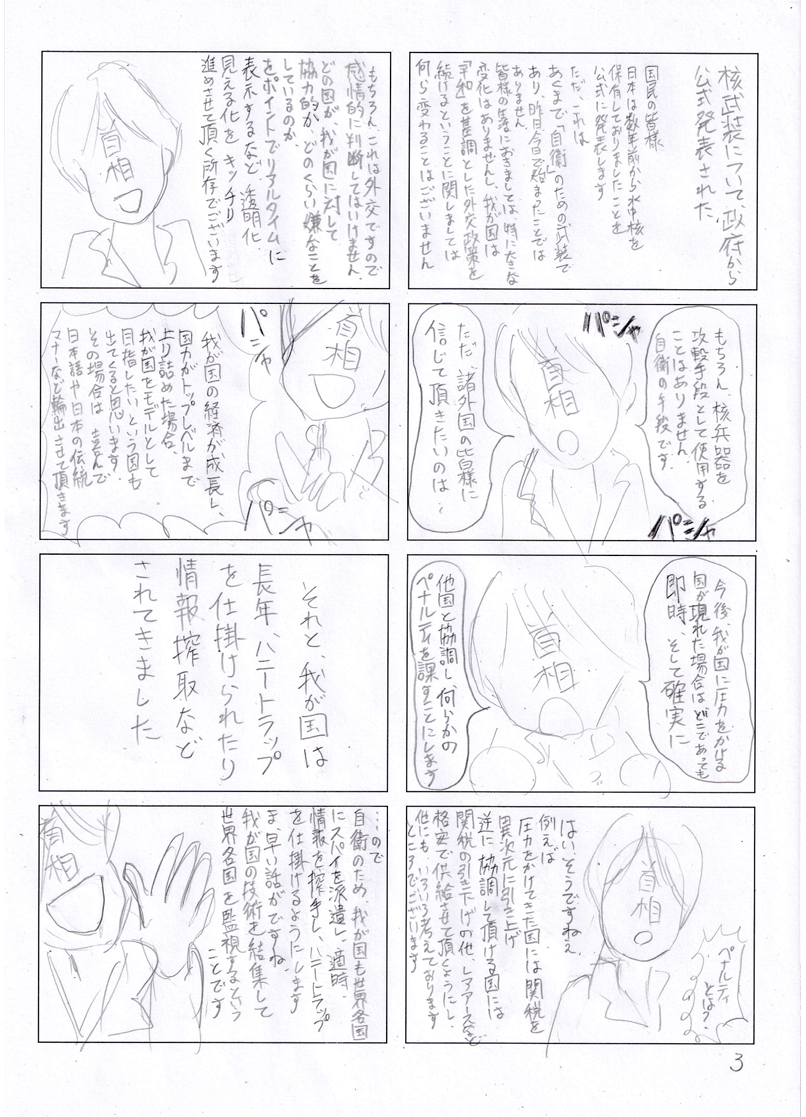 核武装について、政府から
公式発表された。
国民の皆様
日本は数年前から水中核を
保有しておりましたことを
公式に発表します
ただ、これは
あくまで「自衛」のための武装で
あり、昨日今日で始まったことでは
ありません
皆様の生活におきましては、特に大きな
変化はありませんし、我が国は
「平和」を基調とした外交政策を
続けるということに関しましては
何ら変わることはございません
パシャ
もちろん、核兵器を
攻撃手段として使用する
ことはありません
自衛の手段です。
首相
ただ、諸外国の皆様に
信じて頂きたいのは…
パシャ
今後、我が国に圧力をかける
国が現れた場合はどこであっても
即時、そして確実に
首相
他国と協調し何らかの
ペナルティを課すことにします
ペナルティ
とは?
首相
はい、そうですねぇ
例えば
圧力をかけてきた国には関税を
異次元に引き上げ
逆に協調して頂ける国には
関税の引き下げの他、レアアースなど
格安で供給させて頂くようにし、
他にも、いろいろ考えております
ところでございます
もちろん、これは外交ですので
感情的に判断してはいけません、
どの国が、我が国に対して
協力的か、どのくらい嫌なことを
しているのか
をポイントでリアルタイムに
表示するなど、透明化、
見える化を キッチリ
進めさせて頂く所存でございます
首相
首相
パシャ
我が国の経済が成長し、
国力がトップレベルまで
上り詰めた場合、
我が国をモデルとして
目指したい という国も
出てくると思います。
その場合は 喜んで
日本語や日本の伝統
マナーなど輸出させて頂きます
パシャ
それと、我が国は
長年、ハニートラップ
を仕掛けられたり
情報搾取など
されてきました
…ので
自衛のため、我が国も世界各国
にスパイを派遣し、適時、
情報を搾手し、ハニートラップ
を仕掛けるようにします
ま、早い話がですね、
我が国の技術を結集して
世界各国を監視するという
ことです
首相
3